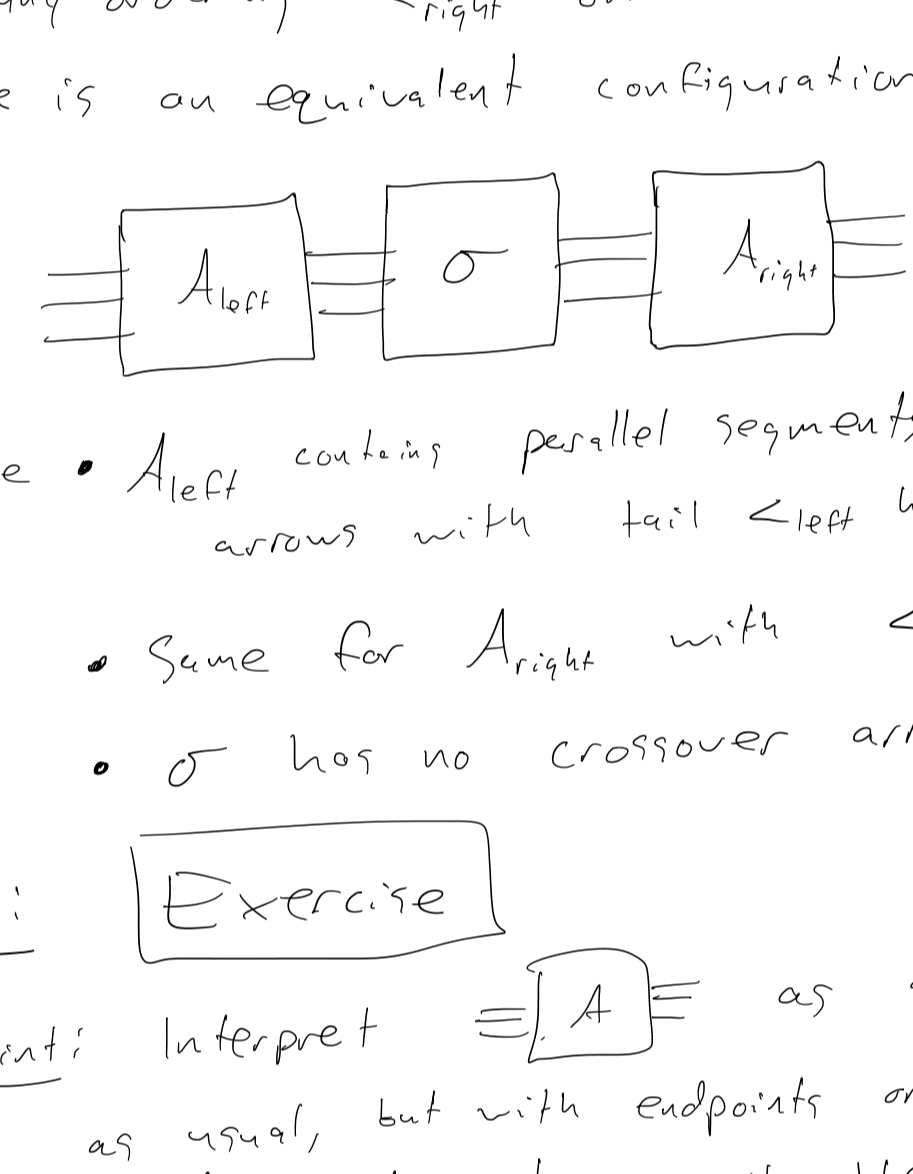 right
is an equivalent configuration
A_left σ A_right
• A_left contains parallel segments
arrows with tail <_left
• Same for A_right with <
• σ has no crossover
: Exercise
int: Interpret A as
as usual, but with endpoints